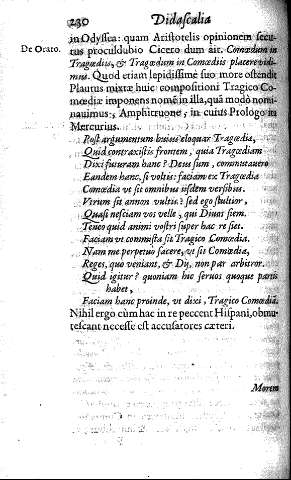 230 Didascalia
in Odyssea: quam Aristotelis opinionem secu
De Orato. tus proculdubio Cicero dum ait. Comœdum in
Tragœdiis, & Tragœdum in Comœdiis placere vidi-
mus. Quod etiam lepidissimè suo more ostendit
Plautus mixtæ huic compositioni Tragico Co-
mœdiæ imponens nomē in illa, quā modò nomi-
nauimus, Amphitruone, in cuius Prologo in
Mercurius.
Post argumentum huius eloquar Tragœdia,
Quid contraxistis frontem, quia Tragœdiam
Dixi futuram hanc? Deus sum, commutauero
Eandem hanc, si voltis: faciam ex Tragœdia
Comœdia vt sit omnibus iisdem versibus.
Vtrum sit annon vultis? sed ego stultior,
Quasi nesciam vos velle, qui Diuus siem.
Teneo quid animi vostri super hac re siet.
Faciam vt commista sit Tragico Comœdia.
Nam me perpetuò facere, vt sit Comœdia,
Reges, quo veniant, & Dij, non par arbitror.
Quid igitur? quoniam hic seruos quoque partis
habet,
Faciam hanc proinde, vt dixi, Tragico Comœdiā.
Nihil ergo cùm hac in re peccent Hispani, obmu-
tescant necesse est accusatores cæteri.
Morem